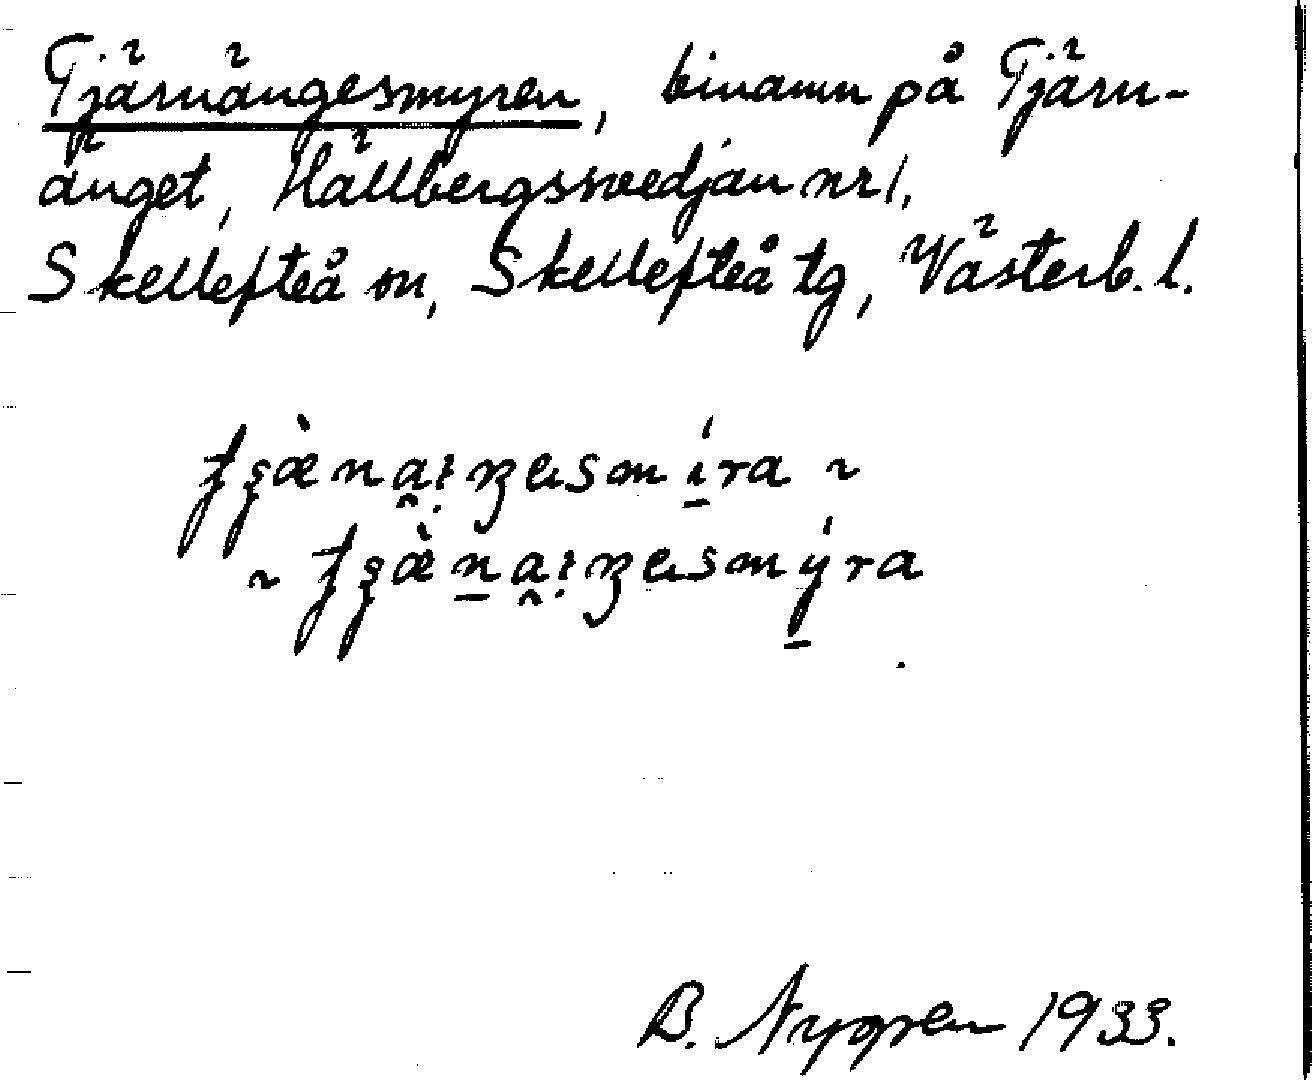 Tjärnängesmyren, binamn på Tjärn-
änget, Hällbergssvedjan nr 1,
Skellefteå sn, Skellefteå tg, Västerb. l.
B. Nygren 1933.